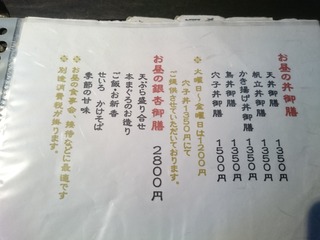 お昼の丼御膳
天丼御膳 1350
帆立丼御膳 1350
かき揚げ丼御膳 1350
鳥丼御膳 1350
穴子丼御膳 1500
※火曜日～金曜日は1200円
穴子丼1350円にて
ご提供させていただいております。
お昼の銀杏御膳 2800円
天ぷら盛り合せ
本まぐろのお造り
ご飯・お新香
せいろ かけそば
季節の甘味
※お昼の食事会、接待などに最適です
※別途消費税が掛ります。